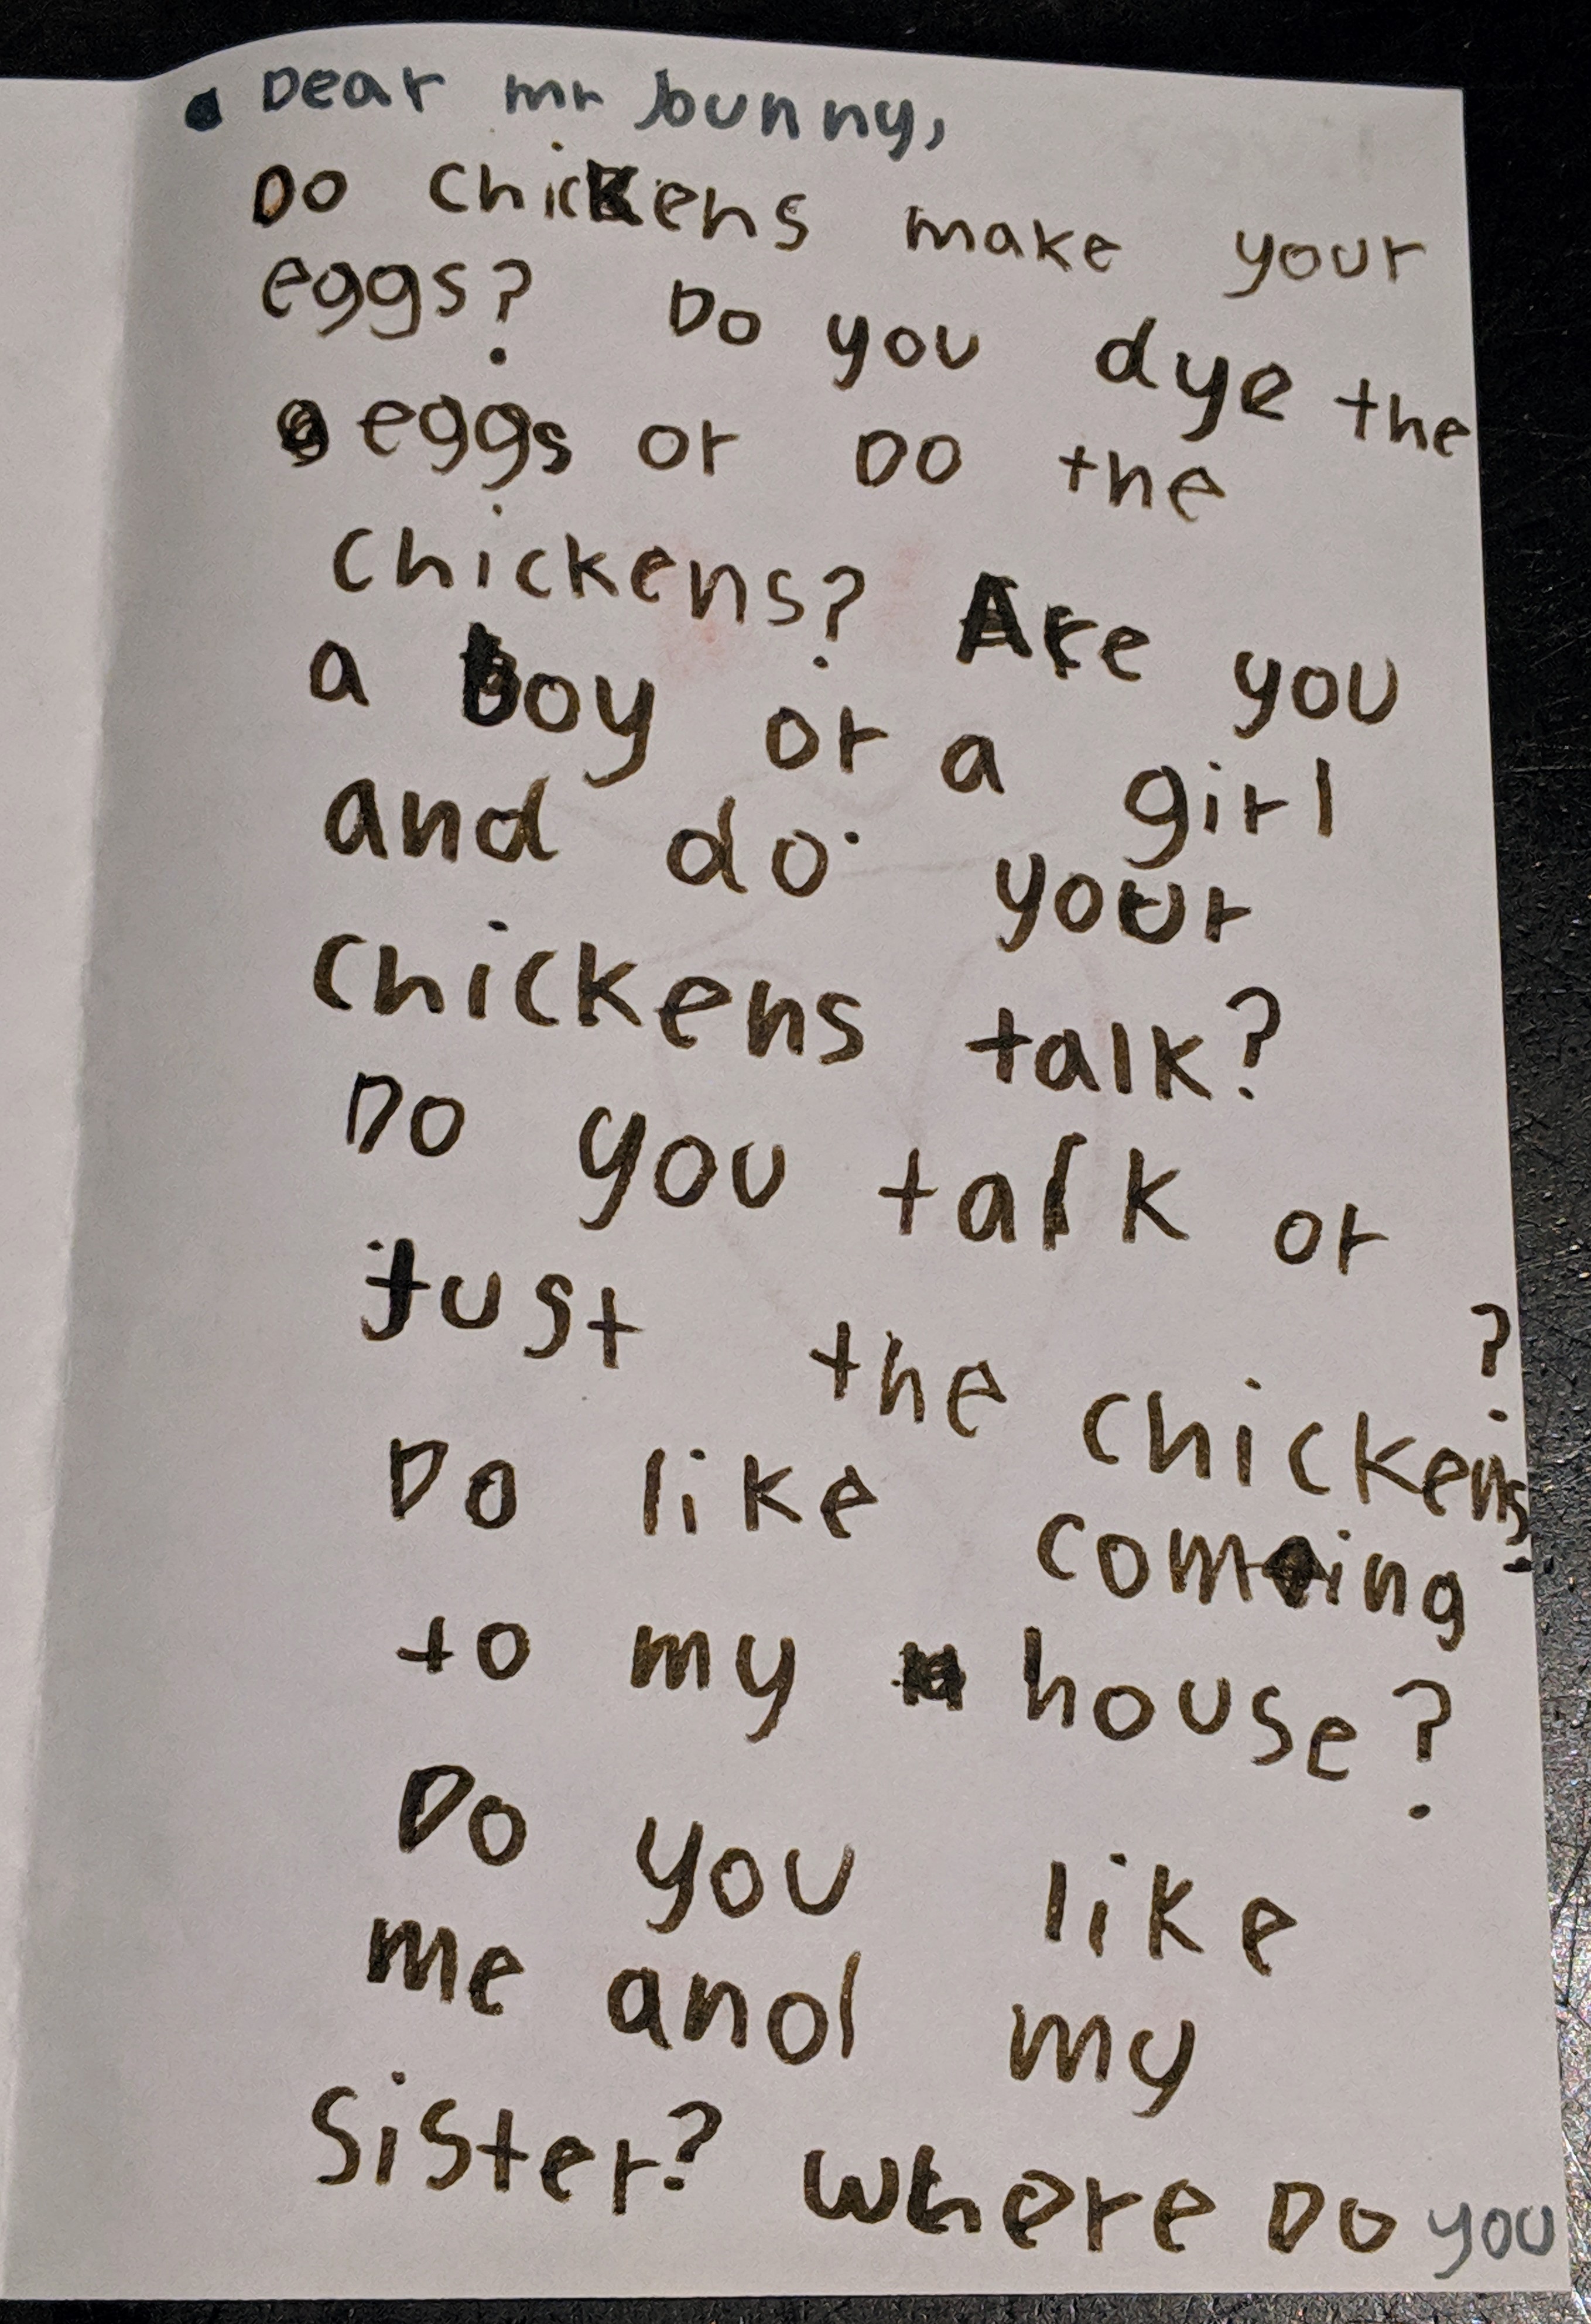 Dear mr bunny,
Do chickens make your
eggs? Do you dye the
eggs or Do the
chickens? Are you
a boy or a girl
and do your
chickens talk?
Do you talk or
just the chickens?
Do like coming
to my house?
Do you like
me and my
sister? Where Do you